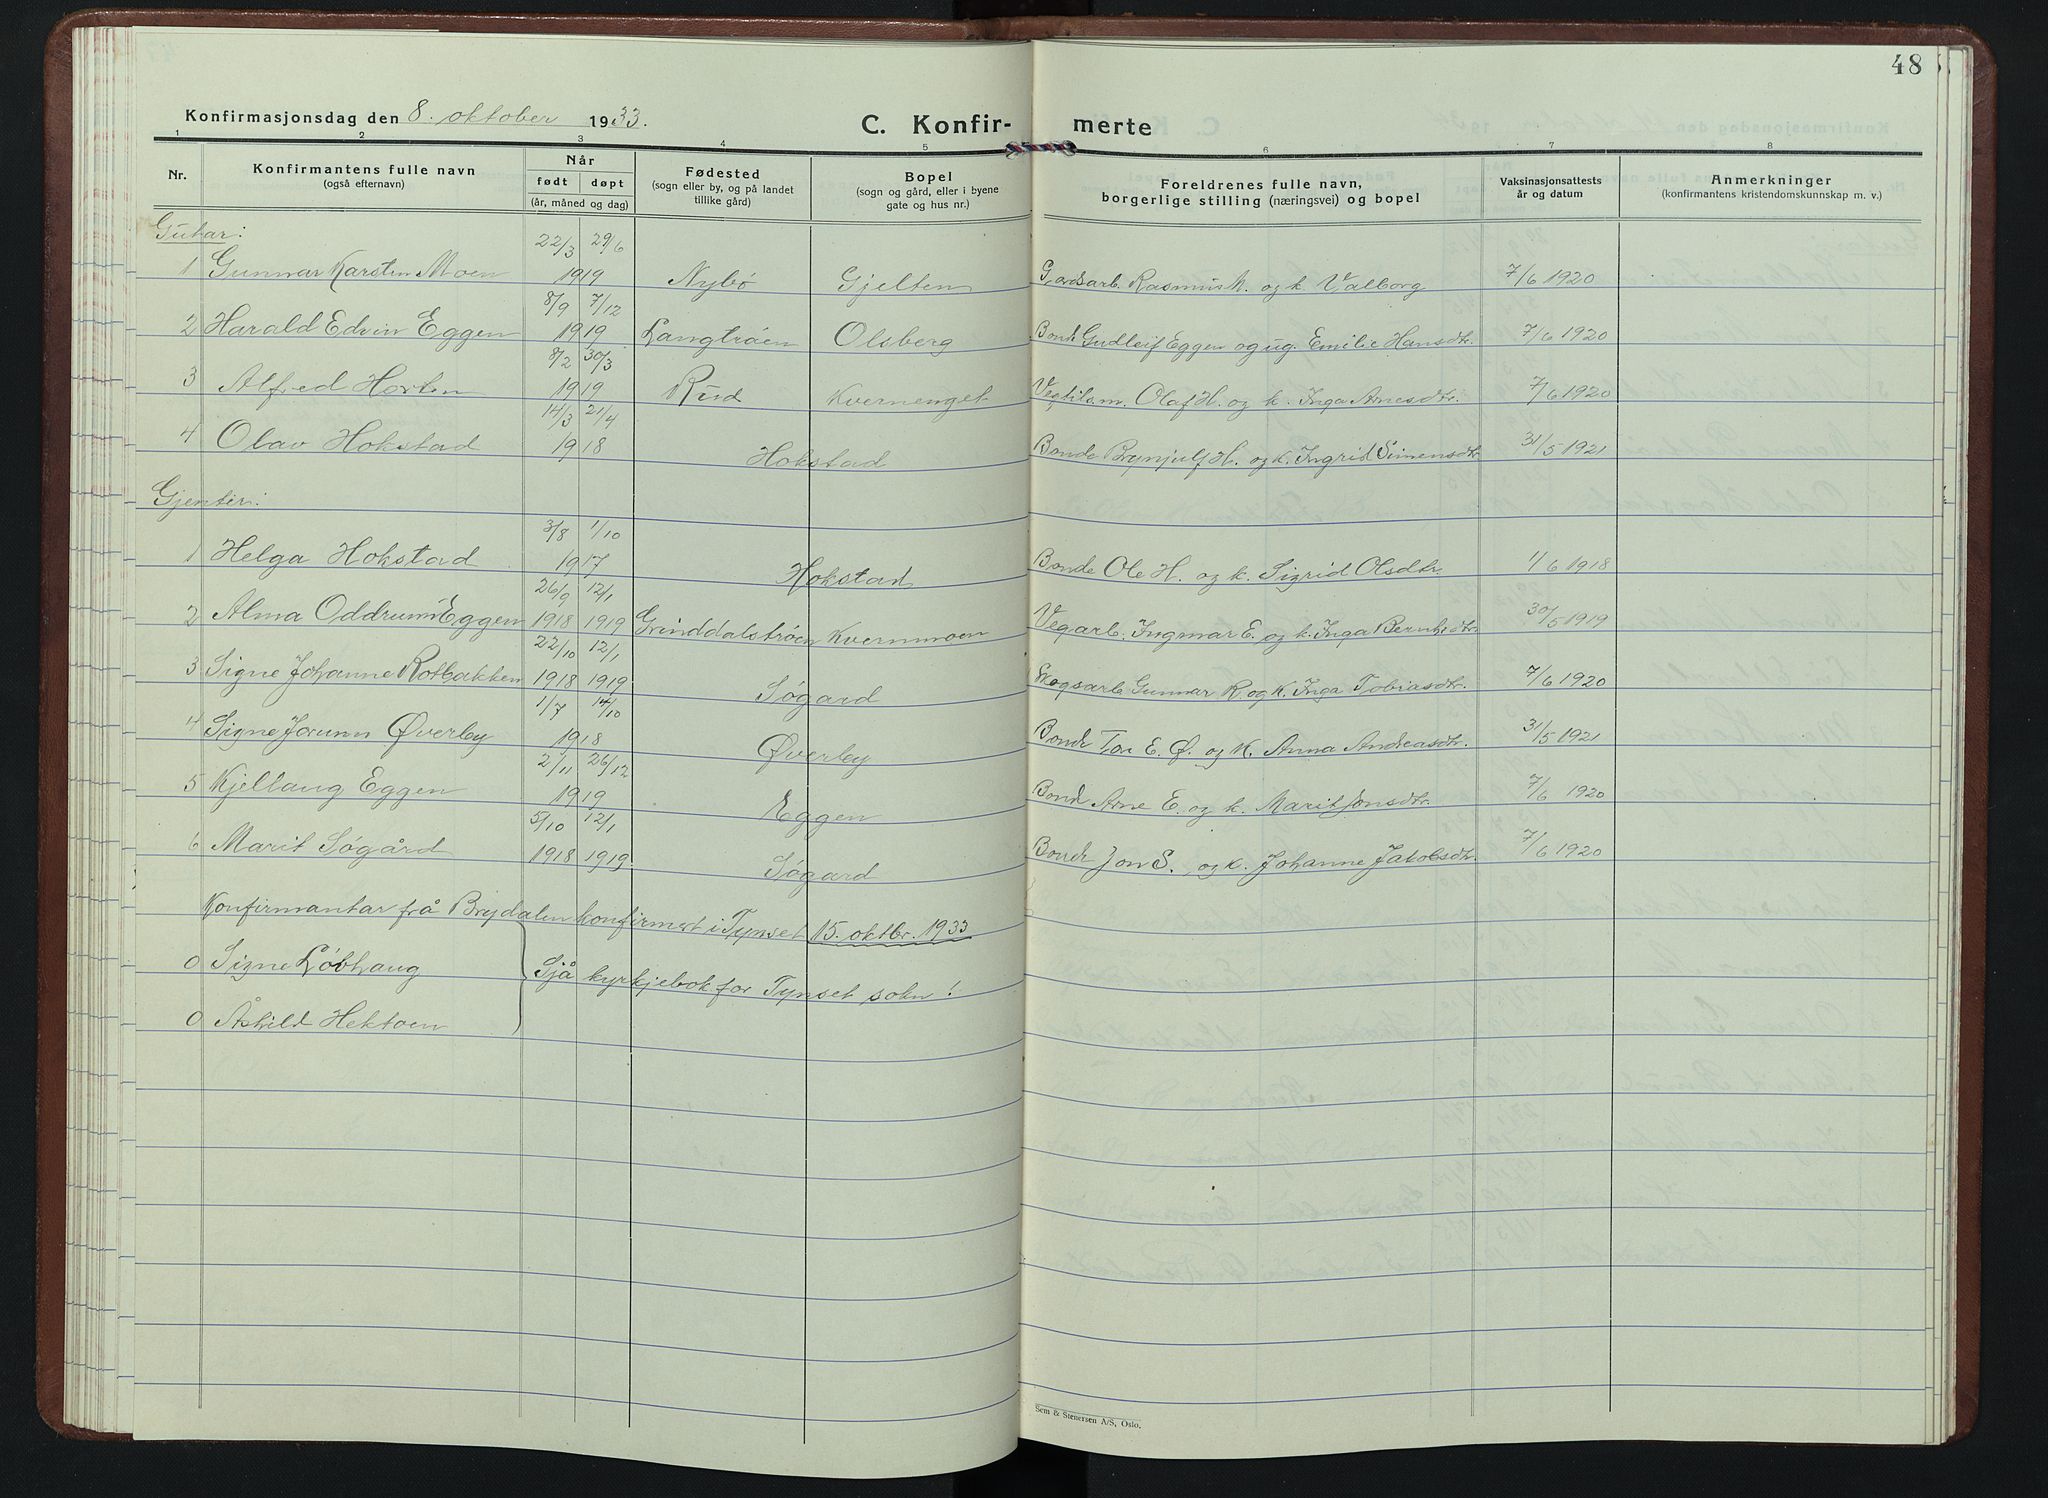 48
Konfirmasjonsdag den 8. oktober 1933.
C. Konfir- merte
1 2 3 4 5 6 7 8
Nr. Konfirmantens fulle navn (også efternavn) Når født døpt (år, måned og dag) Fødested (sogn eller by, og på landet tillike gård) Bopel (sogn og gård, eller i byene gate og hus nr.) Foreldrenes fulle navn, borgerlige stilling (næringsvei) og bopel Vaksinasjonsattests år og datum Anmerkninger (konfirmantens kristendomskunnskap m. v.)
Gutar:
22/3 29/6
1 Gunnar Karsten Moen 1919 Nybø Gjelten Gardsarb. Rasmus M. og k. Valborg 7/6 1920
8/9 7/12
2 Harald Edvin Eggen 1919 Langtrøen Olsberg Bonde Gudleif Eggen og ug. Emilie Hansdtr. 7/6 1920
8/2 30/3
3 Alfred Horten 1919 Rud Kvernenget Vegtils.m. Olaf H. og k. Inga Arnesdtr. 7/6 1920
14/3 21/4
4 Olav Hokstad 1918 Hokstad Bonde Brynjulf H. og k. Ingrid Simensdtr. 31/5 1921
Gjenter:
3/8 1/10
1 Helga Hokstad 1917 Hokstad Bonde Ole H. og k. Sigrid Olsdtr. 1/6 1918
26/9 12/1
2 Alma Oddrun Eggen 1918 1919 Grinddalstrøen Kvernmoen Vegarb. Ingmar E. og k. Inga Bernh.dtr. 30/5 1919
22/10 12/1
3 Signe Johanne Rotbakken 1918 1919 Søgard Skogsarb. Gunnar R. og k. Inga Tobiasdtr. 7/6 1920
1/7 14/10
4 Signe Jorunn Øverby 1918 Øverby Bonde Tore E. Ø. og k. Anna Andreasdtr. 31/5 1921
2/11 26/12
5 Kjellaug Eggen 1919 Eggen Bonde Arne E. og k. Marit Jonsdtr. 7/6 1920
5/10 12/1
6 Marit Søgård 1918 1919 Søgard Bonde Jon S. og k. Johanne Jakobsdtr. 7/6 1920
Konfirmantar frå Brydalen konfirmert i Tynset 15. oktbr. 1933
0 SigneLøbhaug
Sjå kyrkjebok for Tynset sokn!
0 Åshild Hektoen
Sem & Stenersen A/S, Oslo.